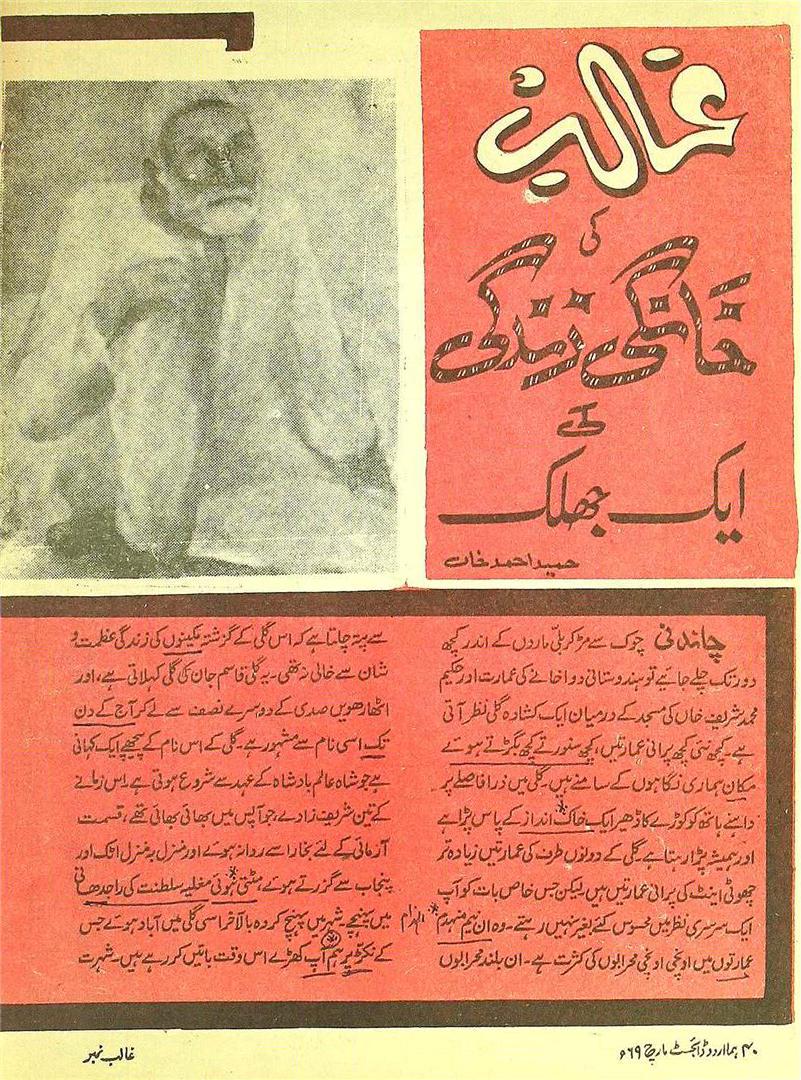 غالب
کی
خانگی زندگی
کی
ایک جھلک
حمید احمد خاں
چاندنی چوک سے مڑ کر بلّی ماروں کے اندر کچھ
دور تک چلے جائیے تو ہندوستانی دواخانے کی عمارت اور حکیم
محمد شریف خاں کی مسجد کے درمیان ایک کشادہ گلی نظر آتی
ہے۔ کچھ نئی کچھ پرانی عمارتیں، کچھ سنورتے کچھ بگڑتے ہوئے
مکان ہماری نگاہوں کے سامنے ہیں۔ گلی میں ذرا فاصلے پر
داہنے ہاتھ کو کوڑے کا ڈھیر ایک خاک انداز کے پاس پڑا ہے
اور ہمیشہ پڑا رہتا ہے۔ گلی کے دونوں طرف کی عمارتیں زیادہ تر
چھوٹی اینٹ کی پرانی عمارتیں ہیں لیکن جس خاص بات کو آپ
ایک سرسری نظر میں محسوس کئے بغیر نہیں رہتے۔ وہ ان نیم منہدم
عمارتوں میں اونچی اونچی محرابوں کی کثرت ہے۔ ان بلند محرابوں
سے پتہ چلتا ہے کہ اس گلی کے گزشتہ مکینوں کی زندگی عظمت و
شان سے خالی نہ تھی۔ یہ گلی قاسم جان کی گلی کہلاتی ہے، اور
اٹھارھویں صدی کے دوسرے نصف سے لے کر آج کے دن
تک اسی نام سے مشہور ہے۔ گلی کے اس نام کے پیچھے ایک کہانی
ہے جو شاہ عالم بادشاہ کے عہد سے شروع ہوتی ہے۔ اس زمانے
کے تین شریف زادے، جو آپس میں بھائی بھائی تھے، قسمت
آزمائی کے لئے بخارا سے روانہ ہوئے اور منزل بہ منزل اٹک اور
پنجاب سے گزرتے ہوئے مٹتی ہوئی مغلیہ سلطنت کی راجدھانی
میں پہنچے۔ شہر میں پہنچ کر وہ بالآخر اسی گلی میں آباد ہوئے جس
کے نکڑ پر ہم آپ کھڑے اس وقت باتیں کر رہے ہیں۔ شہرت
۴۰ ہما اردو ڈائجسٹ مارچ ۶۹ء
غالب نمبر